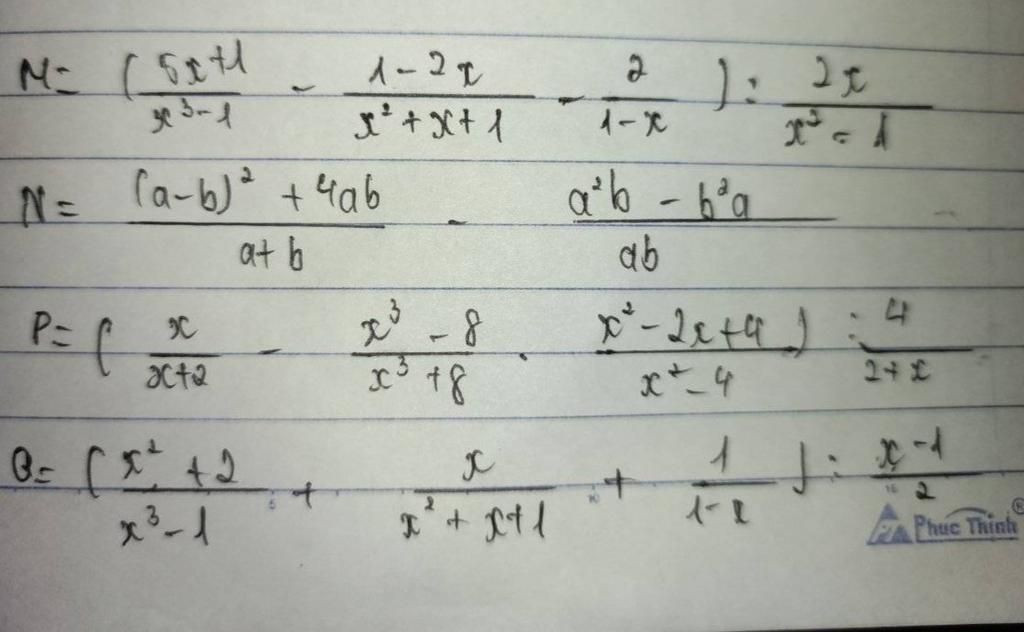 M = ( 5x+1 / x³-1 - 1-2x / x²+x+1 - 2 / 1-x ) : 2x / x²-1
N = (a-b)² + 4ab / a+b - a²b - b²a / ab
P = ( x / x+2 - x³ - 8 / x³ + 8 . x² - 2x+4 / x² - 4 ) : 4 / 2+x
Q = ( x² + 2 / x³ - 1 + x / x² + x+1 + 1 / 1-x ) : x-1 / 2
5 10 15
Phuc Thinh®